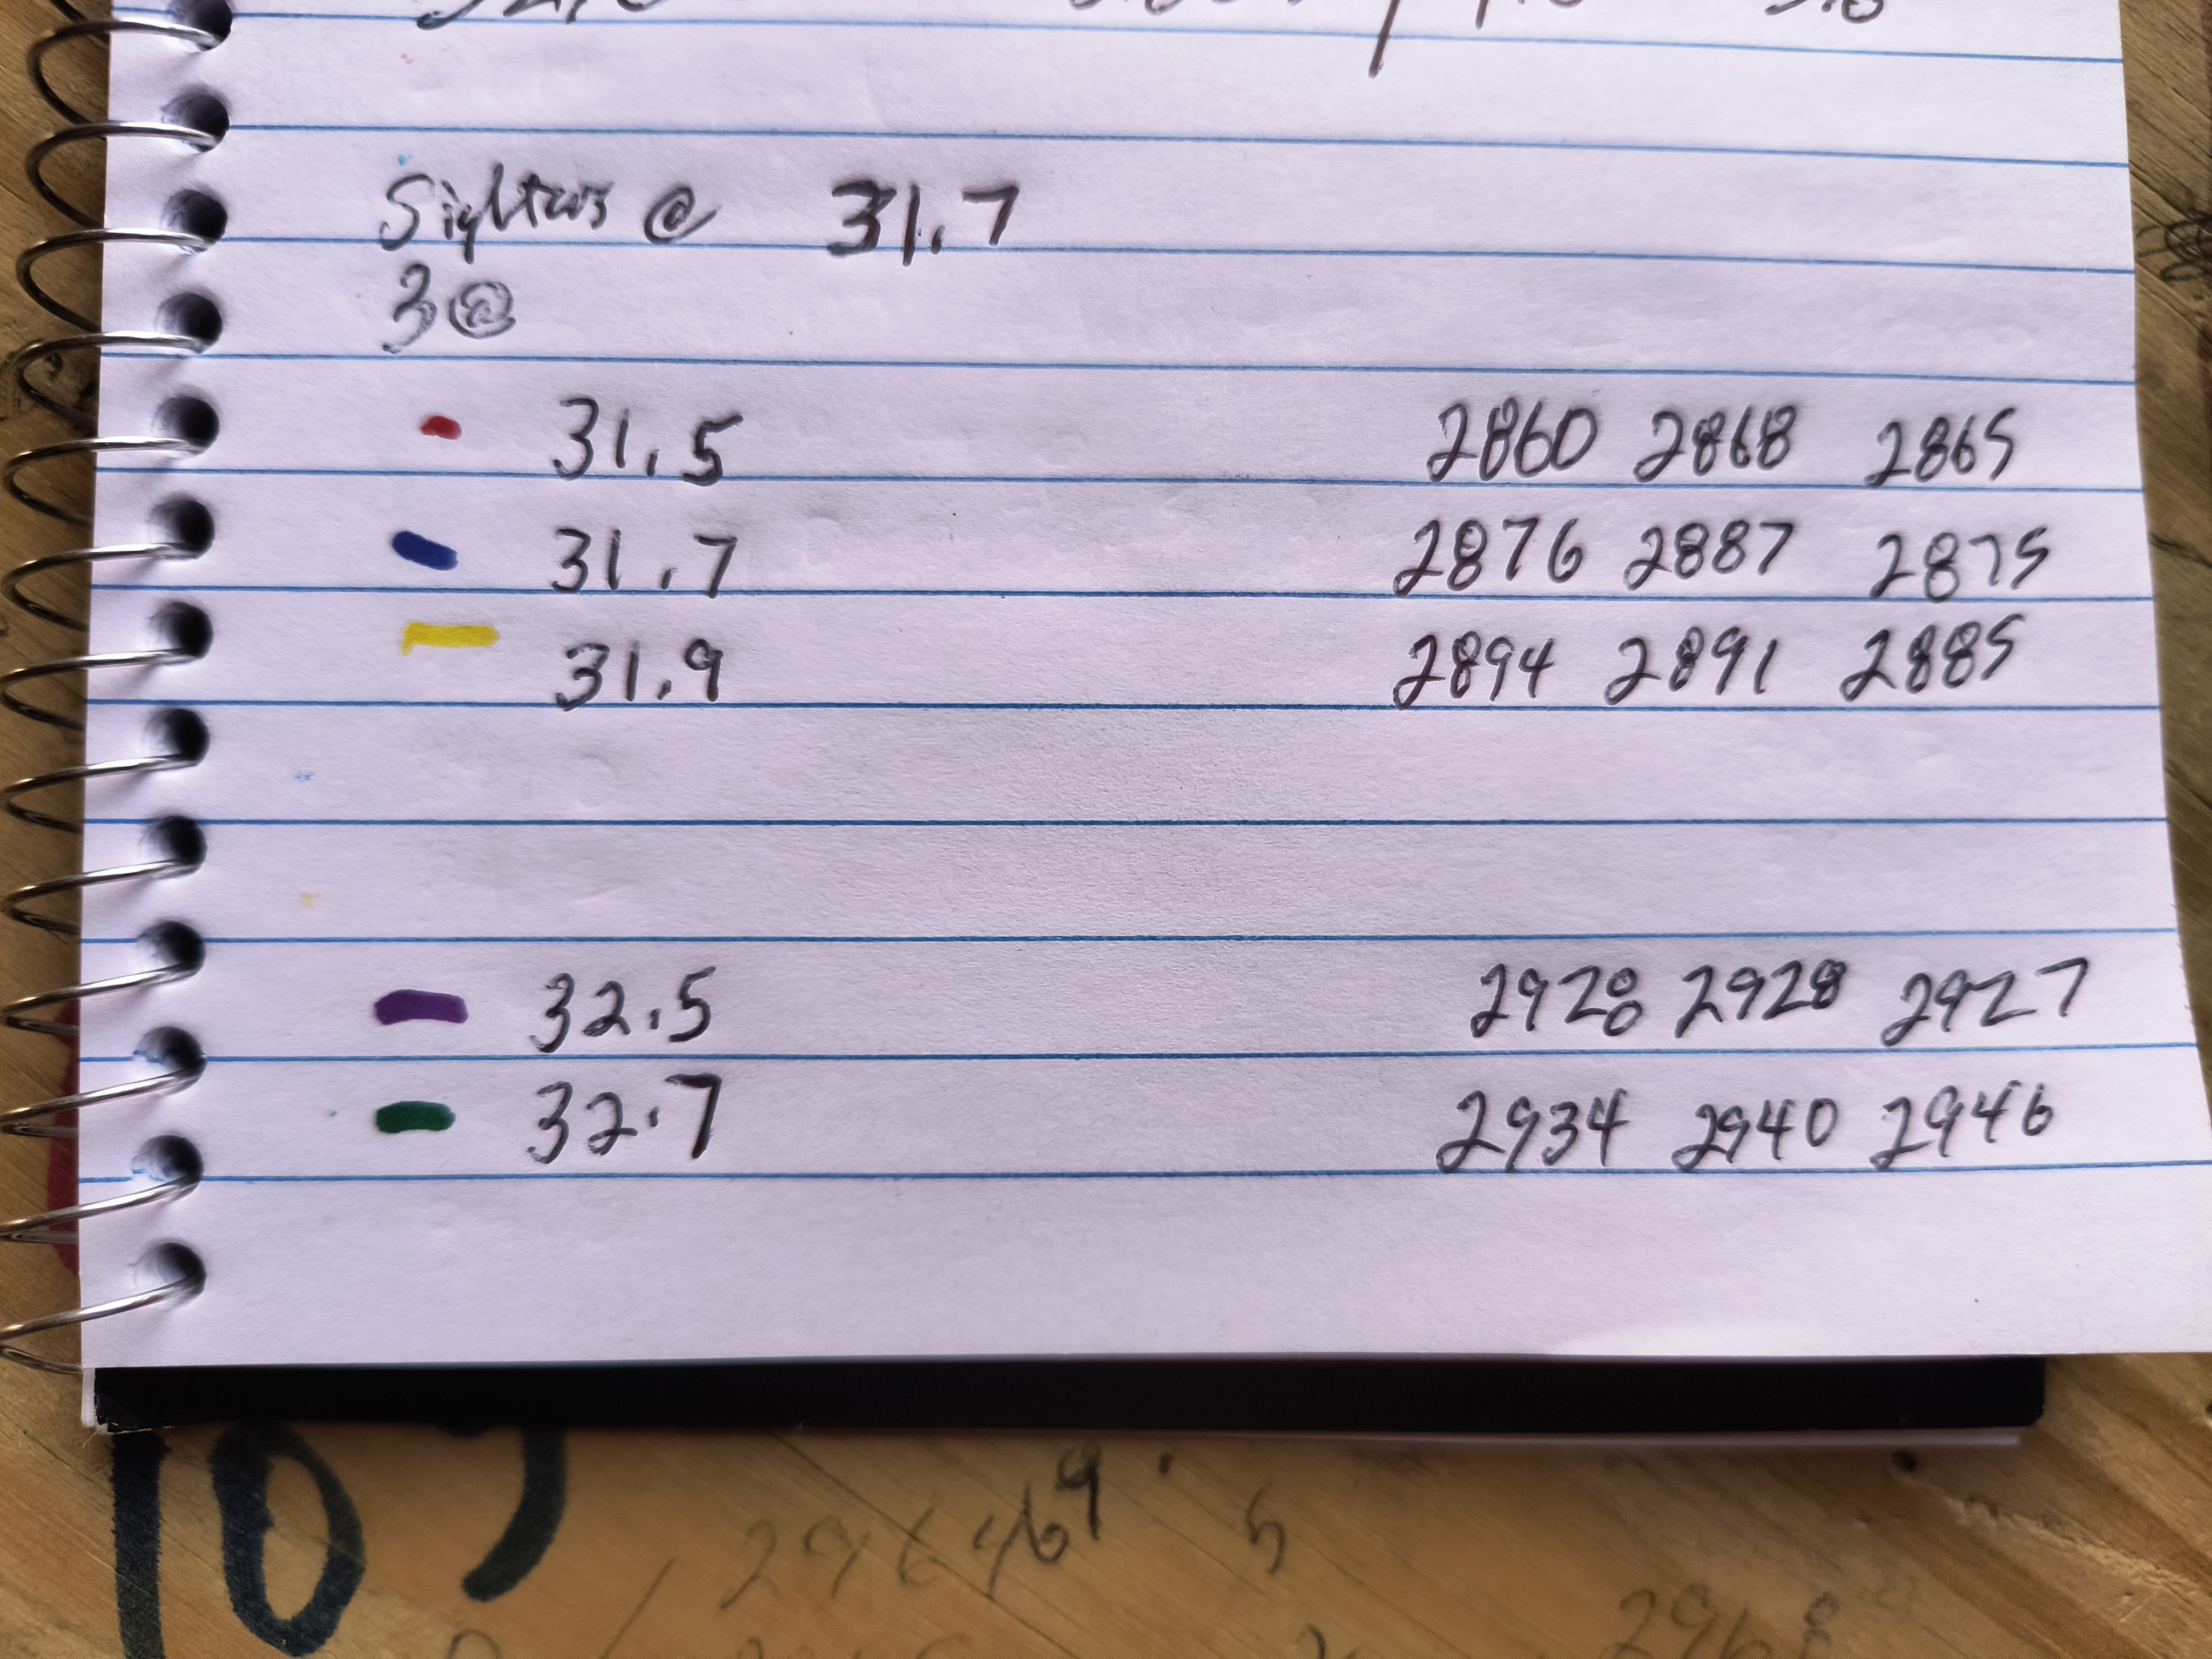 Sighters @ 31.7
3@
31.5 2860 2868 2865
31.7 2876 2887 2875
31.9 2894 2891 2885
32.5 2928 2928 2927
32.7 2934 2940 2946
10
2968